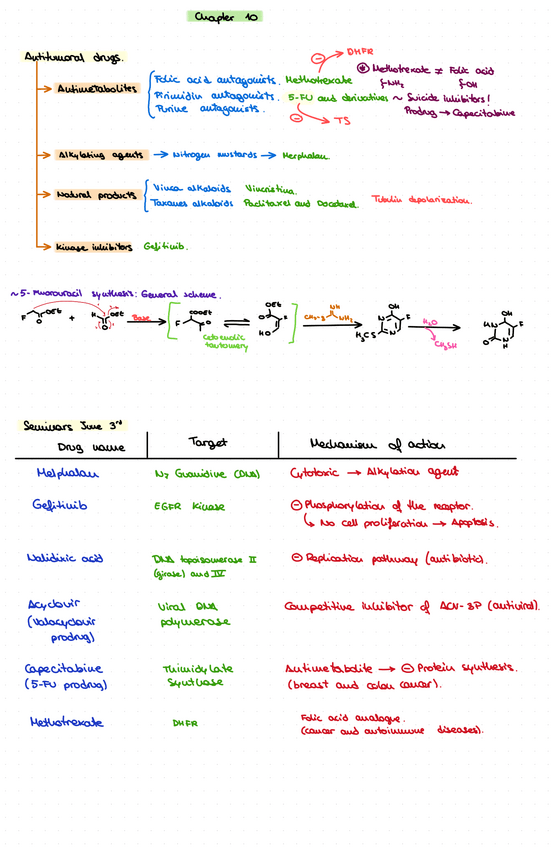 Chapter 10
Antitumoral drugs.
Antimetabolites
Folic acid antagonists. Methotrexate
⊖ DHFR
* Methotrexate ≠ Folic acid
-NH₂ -OH
Pirimidin antagonists. 5-FU and derivatives ~ Suicide inhibitors!
Prodrug → Capecitabine
Purine antagonists.
⊖ TS
Alkylating agents → Nitrogen mustards → Melphalan.
Natural products
Vinca alkaloids Vincristina.
Taxanes alkaloids Paclitaxel and Docetaxel. Tubulin depolarization.
Kinase inhibitors Gefitinib.
~ 5-Fluorouracil synthesis: General scheme.
F O OEt + H O OEt Base COOEt F O OEt O F HO CH₃-S NH NH₂ OH F N N H₃CS H₂O CH₃SH OH F HN O N H
ceto enolic
tautomery
Seminars June 3rd
Drug name Target Mechanism of action
Melphalan N₇ Guanidine (DNA) Cytotoxic → Alkylation agent
Gefitinib EGFR Kinase ⊖ Phosphorylation of the receptor.
↳ No cell proliferation → Apoptosis.
Nalidixic acid DNA topoisomerase II ⊖ Replication pathway (antibiotic).
(girase) and IV
Acyclovir Viral DNA Competitive inhibitor of ACV-3P (antiviral).
(Valacyclovir polymerase
prodrug)
Capecitabine Thimidylate Antimetabolite → ⊖ Protein synthesis.
(5-FU prodrug) Synthase (breast and colon cancer).
Methotrexate DHFR Folic acid analogue.
(cancer and autoimmune diseases).